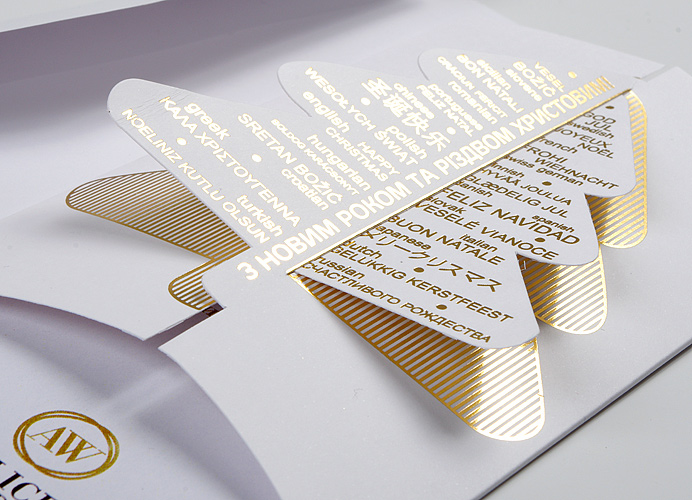 greek
ΚΑΛΑ ΧΡΙΣΤΟΥΓΕΝΝΑ
NOELINIZ KUTLU OLSUN
turkish
SRETAN BOŽIĆ
croatian
hungarian
english
HAPPY
CHRISTMAS
WESOŁYCH ŚWIĄT
polish
圣诞快乐
chinese
portuguese
BON NATAL
romanian
VESEL
BOŽIČ
З НОВИМ РОКОМ ТА РІЗДВОМ ХРИСТОВИМ!
GOD
JUL
swedish
JOYEUX
NOËL
french
FROHI
WIEHNACHT
swiss german
HYVÄÄ JOULUA
finnish
GLÆDELIG JUL
FELIZ NAVIDAD
spanish
slovak
VESELÉ VIANOCE
BUON NATALE
italian
japanese
メリークリスマス
dutch
GELUKKIG KERSTFEEST
russian
СЧАСТЛИВОГО РОЖДЕСТВА
AW